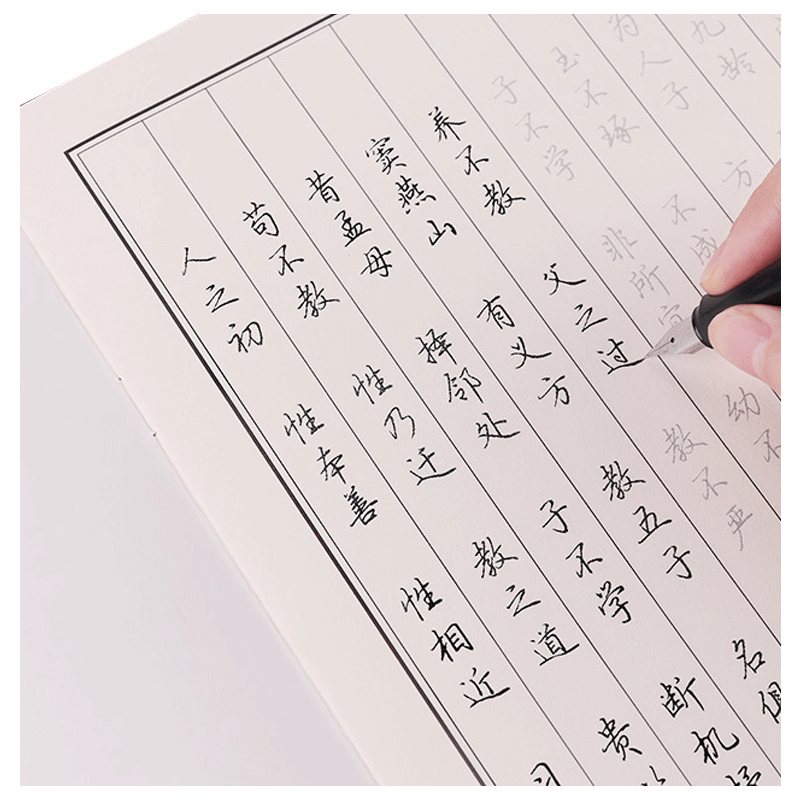 人之初 性本善 性相近 习
苟不教 性乃迁 教之道 贵
昔孟母 择邻处 子不学 断机
窦燕山 有义方 教五子 名俱
养不教 父之过 教不严
子不学 非所宜 幼不
玉不琢 不成
为人子 方
九龄